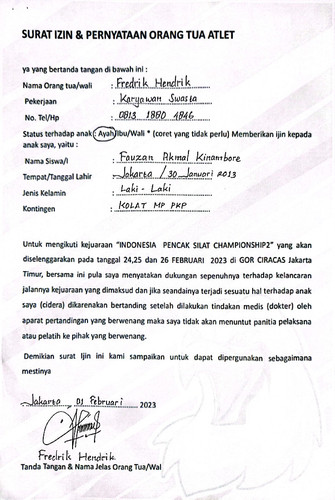 SURAT IZIN & PERNYATAAN ORANG TUA ATLET
ya yang bertanda tangan di bawah ini :
Nama Orang tua/wali : Fredrik Hendrik
Pekerjaan : Karyawan Swasta
No. Tel/Hp : 0813 1880 4846
Status terhadap anak : Ayah/Ibu/Wali * (coret yang tidak perlu) Memberikan ijin kepada
anak saya, yaitu :
Nama Siswa/i : Fauzan Akmal Kinambore
Tempat/Tanggal Lahir : Jakarta / 30 Januari 2013
Jenis Kelamin : Laki - Laki
Kontingen : KOLAT MP PKP
Untuk mengikuti kejuaraan "INDONESIA PENCAK SILAT CHAMPIONSHIP2" yang akan
diselenggarakan pada tanggal 24,25 dan 26 FEBRUARI 2023 di GOR CIRACAS Jakarta
Timur, bersama ini pula saya menyatakan dukungan sepenuhnya terhadap kelancaran
jalannya kejuaraan yang dimaksud dan jika seandainya terjadi sesuatu hal terhadap anak
saya (cidera) dikarenakan bertanding setelah dilakukan tindakan medis (dokter) oleh
aparat pertandingan yang berwenang maka saya tidak akan menuntut panitia pelaksana
atau pelatih ke pihak yang berwenang.
Demikian surat Ijin ini kami sampaikan untuk dapat dipergunakan sebagaimana
mestinya
Jakarta, 01 Februari 2023
Fredrik Hendrik
Tanda Tangan & Nama Jelas Orang Tua/Wal